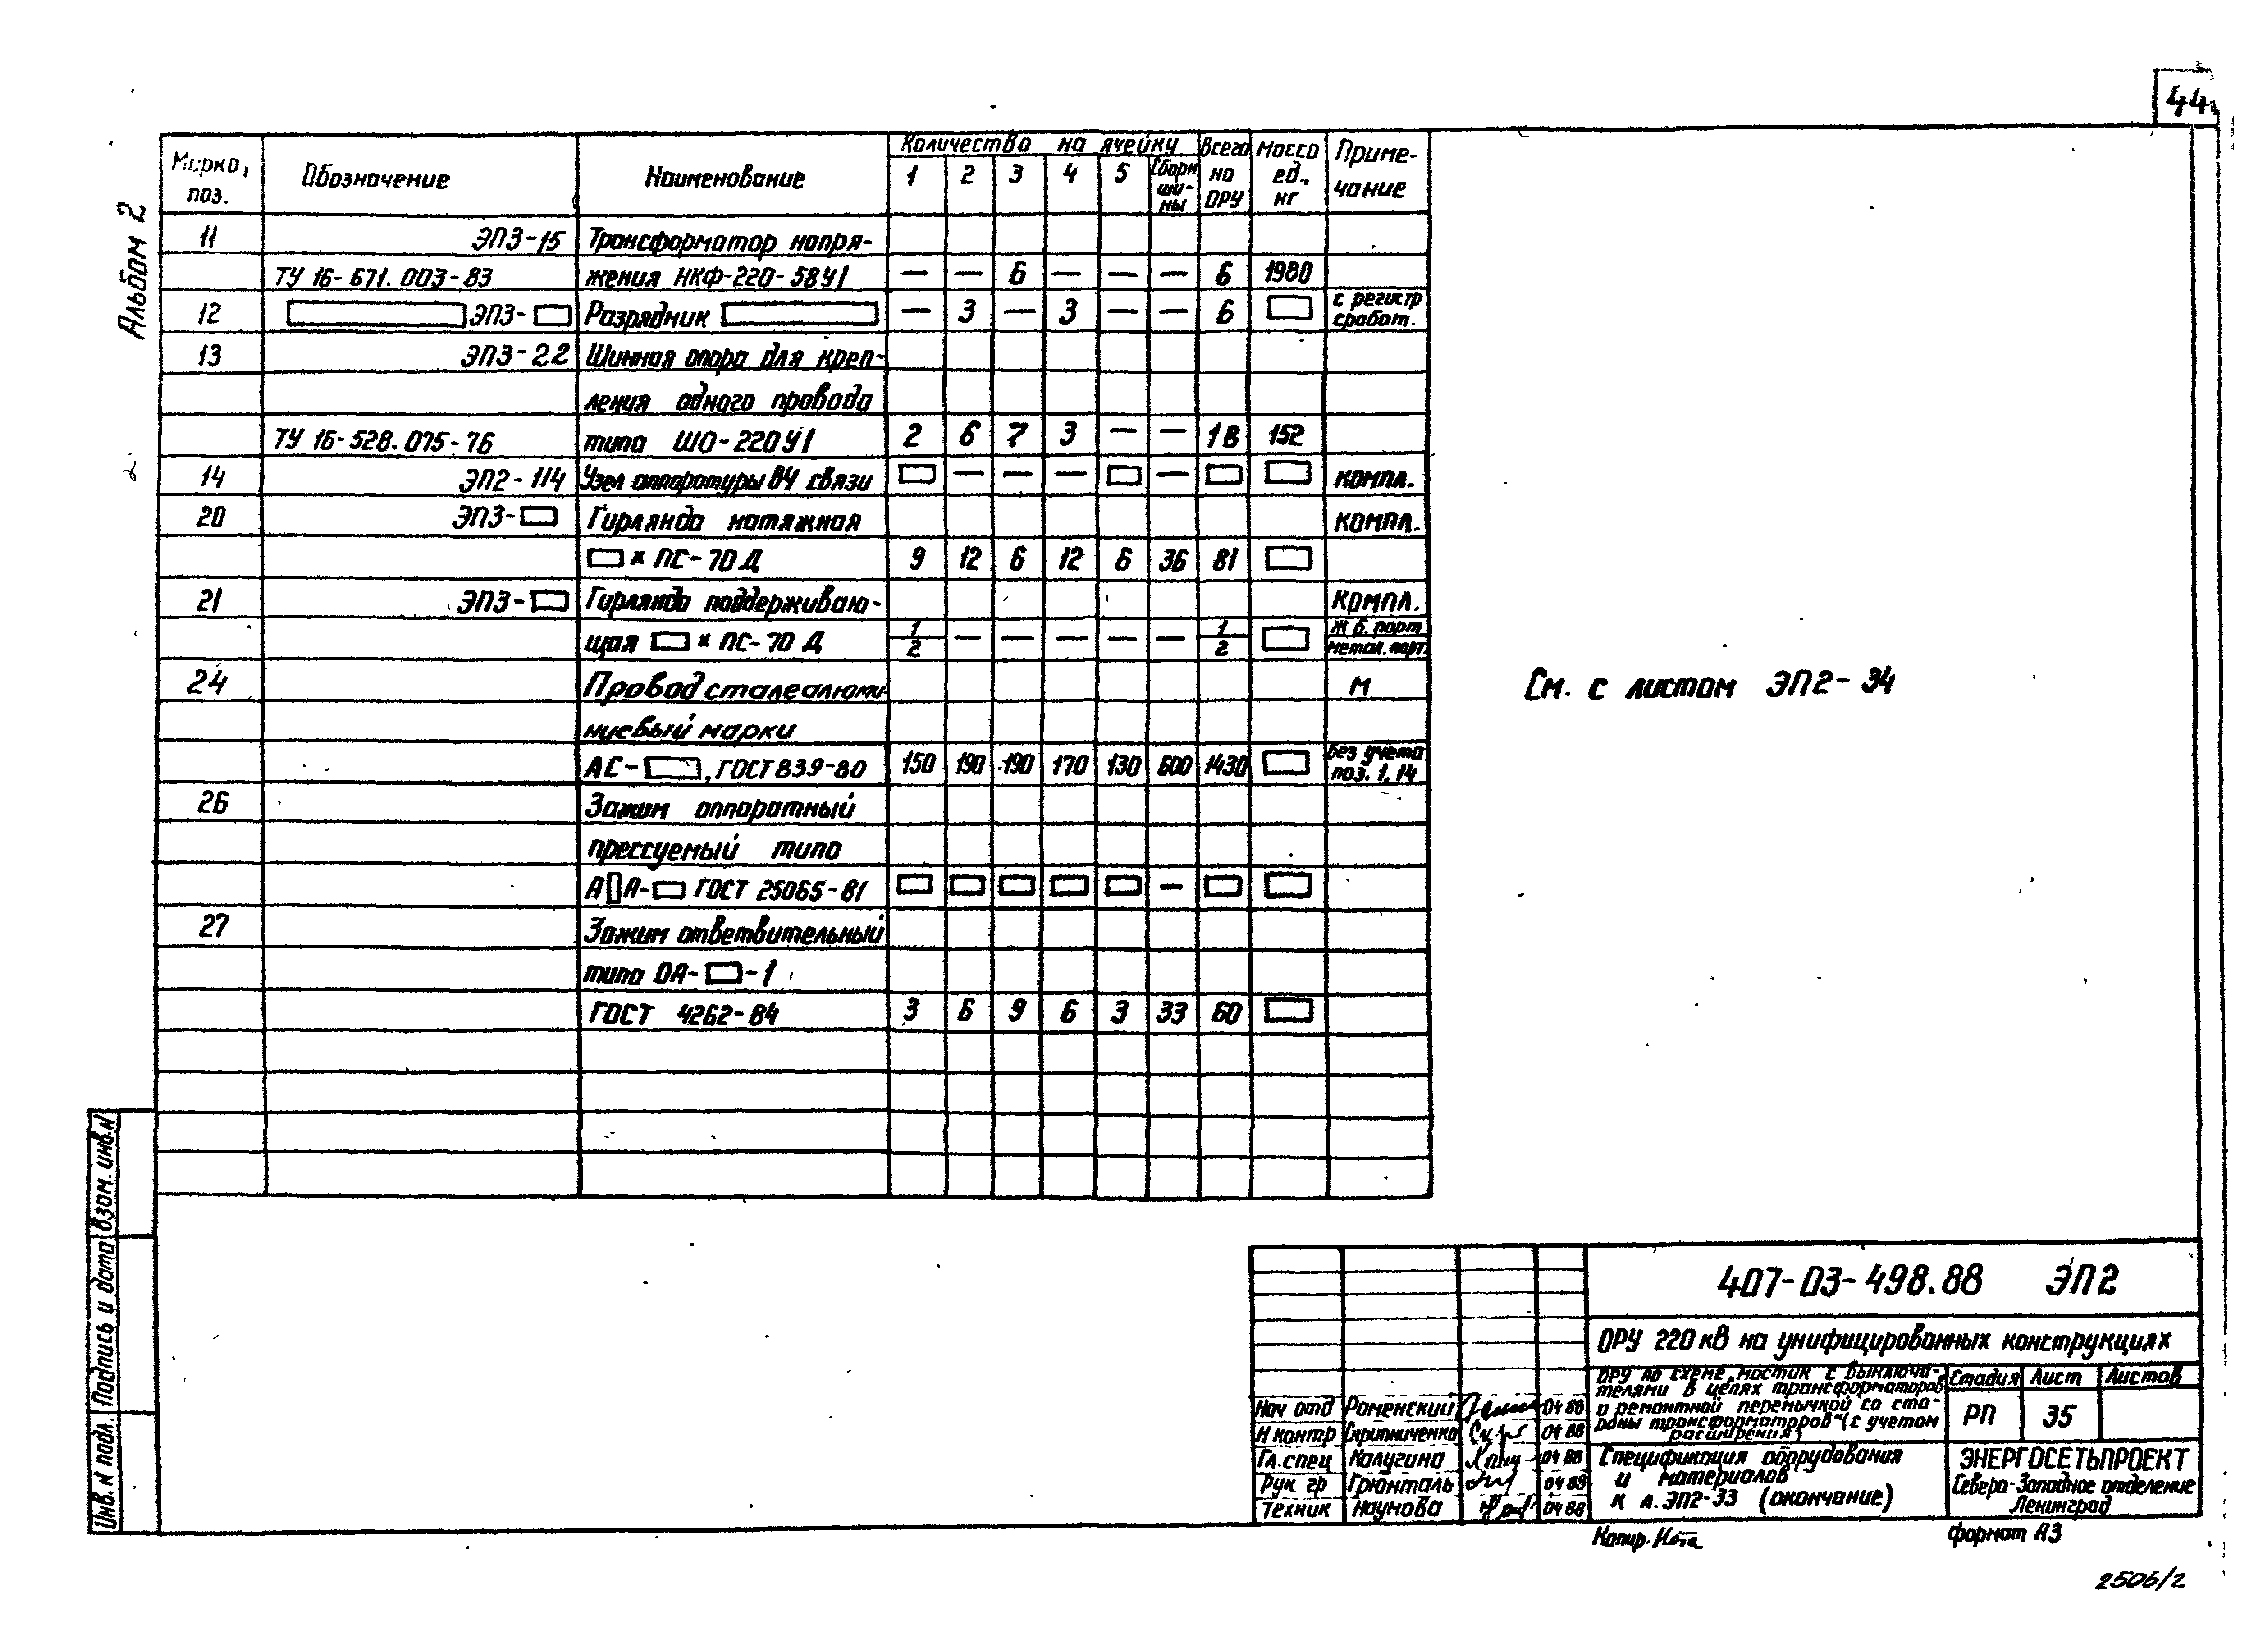 44
Альбом 2
Марка, поз. Обозначение Наименование Количество на ячейку Всего на ОРУ Масса ед., кг Приме-чание
1 2 3 4 5 Сборн ши-ны
11 ЭП3-15 Трансформатор напря-
ТУ 16-671.003-83 жения НКФ-220-58У1 — — 6 — — — 6 1980
12 ЭП3- Разрядник — 3 — 3 — — 6 с регистр сработ.
13 ЭП3-22 Шинная опора для креп-
ления одного провода
ТУ 16-528.075-76 типа ШО-220У1 2 6 7 3 — — 18 152
14 ЭП2-114 Узел аппаратуры ВЧ связи — — — — компл.
20 ЭП3- Гирлянда натяжная компл.
× ПС-70 Д 9 12 6 12 6 36 81
21 ЭП3- Гирлянда поддерживаю- компл.
щая × ПС-70 Д 1/2 — — — — — 1/2 ж б. порт метал. порт.
24 Провод сталеалюми- м
ниевый марки
АС- , ГОСТ 839-80 150 190 190 170 130 600 1430 без учета поз. 1, 14
26 Зажим аппаратный
прессуемый типа
А А- ГОСТ 25065-81 —
27 Зажим ответвительный
типа ОА- -1
ГОСТ 4262-84 3 6 9 6 3 33 60
См. с листом ЭП2-34
Взам. инв. N
Подпись и дата
Инв. N подл.
407-03-498.88 ЭП2
ОРУ 220 кВ на унифицированных конструкциях
ОРУ по схеме „мостик с выключа-
телями в цепях трансформаторов
и ремонтной перемычкой со сто-
роны трансформаторов" (с учетом
расширения)
Стадия Лист Листов
РП 35
Нач отд Роменский 04 88
Н контр Скрипниченко 04 88
Гл. спец Калугина 04 88
Рук гр Грюнталь 04 88
Техник Наумова 04 88
Спецификация оборудования
и материалов
к л. ЭП2-33 (окончание)
ЭНЕРГОСЕТЬПРОЕКТ
Северо-Западное отделение
Ленинград
Копир.
формат А3
2506/2